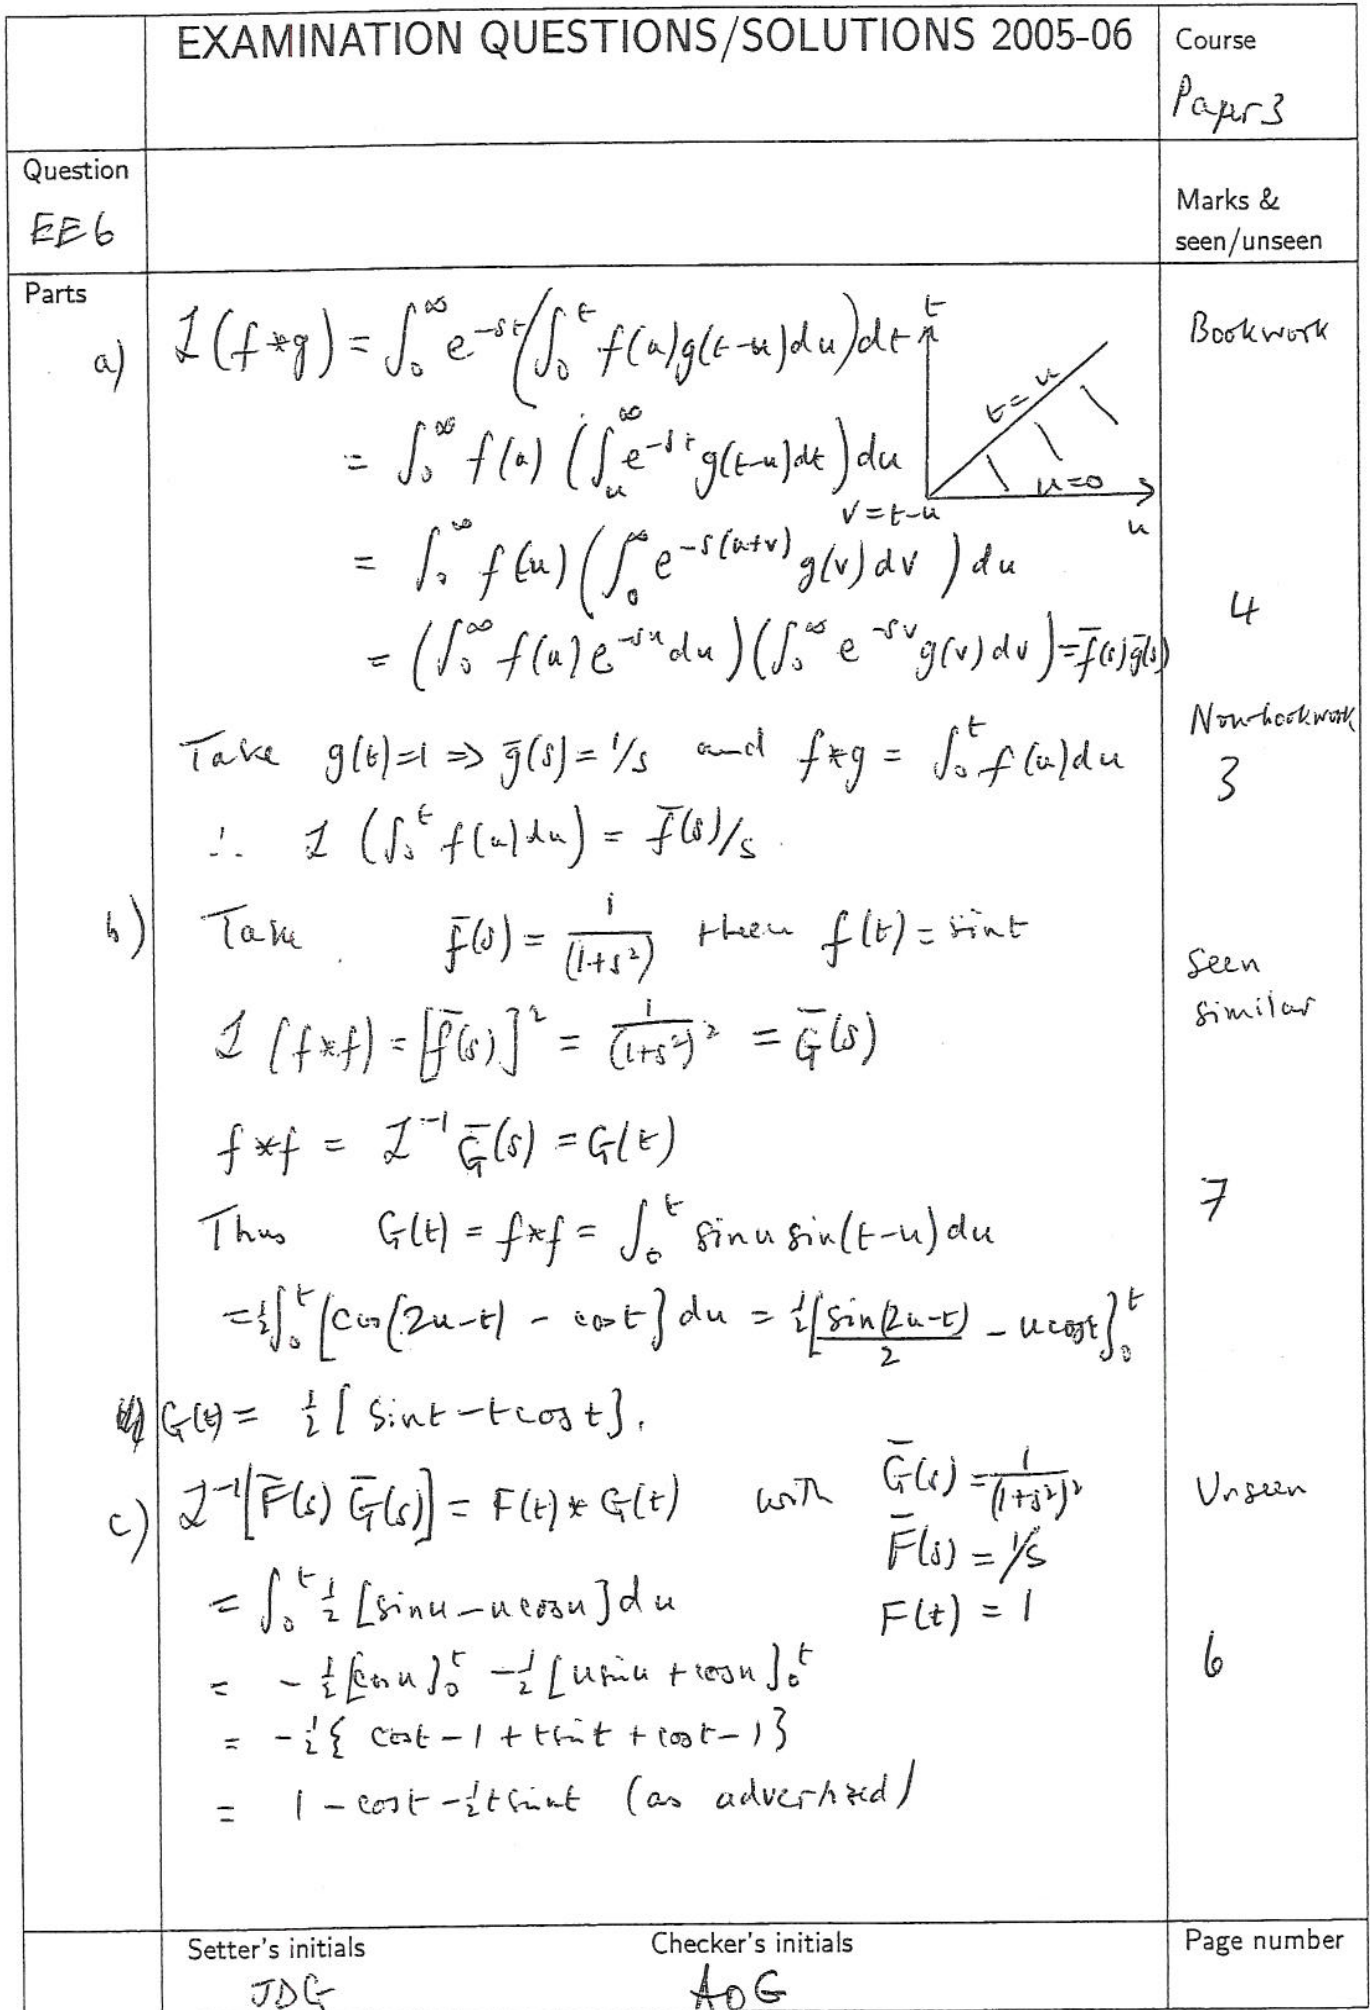 EXAMINATION QUESTIONS/SOLUTIONS 2005-06
Course
Paper 3
Question
EE6
Marks &
seen/unseen
Parts
a)
ℒ(f*g) = ∫₀^∞ e^{-st}(∫₀^t f(u)g(t-u)du)dt
t
t=u
u=0
u
Bookwork
= ∫₀^∞ f(u) (∫_u^∞ e^{-st} g(t-u)dt)du
v=t-u
= ∫₀^∞ f(u) (∫₀^∞ e^{-s(u+v)} g(v)dv) du
4
= (∫₀^∞ f(u)e^{-su}du)(∫₀^∞ e^{-sv}g(v)dv) = f̄(s)ḡ(s)
Non-bookwork
Take g(t)=1 ⇒ ḡ(s)=1/s and f*g = ∫₀^t f(u)du
3
∴ ℒ(∫₀^t f(u)du) = f̄(s)/s.
b) Take f̄(s) = 1/(1+s²) then f(t) = sint
Seen
similar
ℒ(f*f) = [f̄(s)]² = 1/(1+s²)² = Ḡ(s)
f*f = ℒ⁻¹ Ḡ(s) = G(t)
7
Thus G(t) = f*f = ∫₀^t sinu sin(t-u)du
= ½∫₀^t [cos(2u-t) - cost] du = ½[sin(2u-t)/2 - ucost]₀^t
G(t) = ½[sint - tcost].
c) ℒ⁻¹[F̄(s) Ḡ(s)] = F(t) * G(t) with Ḡ(s) = 1/(1+s²)²
Unseen
F̄(s) = 1/s
= ∫₀^t ½[sinu - ucosu]du
F(t) = 1
= -½[cosu]₀^t - ½[usinu + cosu]₀^t
6
= -½{cost - 1 + tsint + cost - 1}
= 1 - cost - ½tsint (as advertized)
Setter's initials
JDG
Checker's initials
AOG
Page number